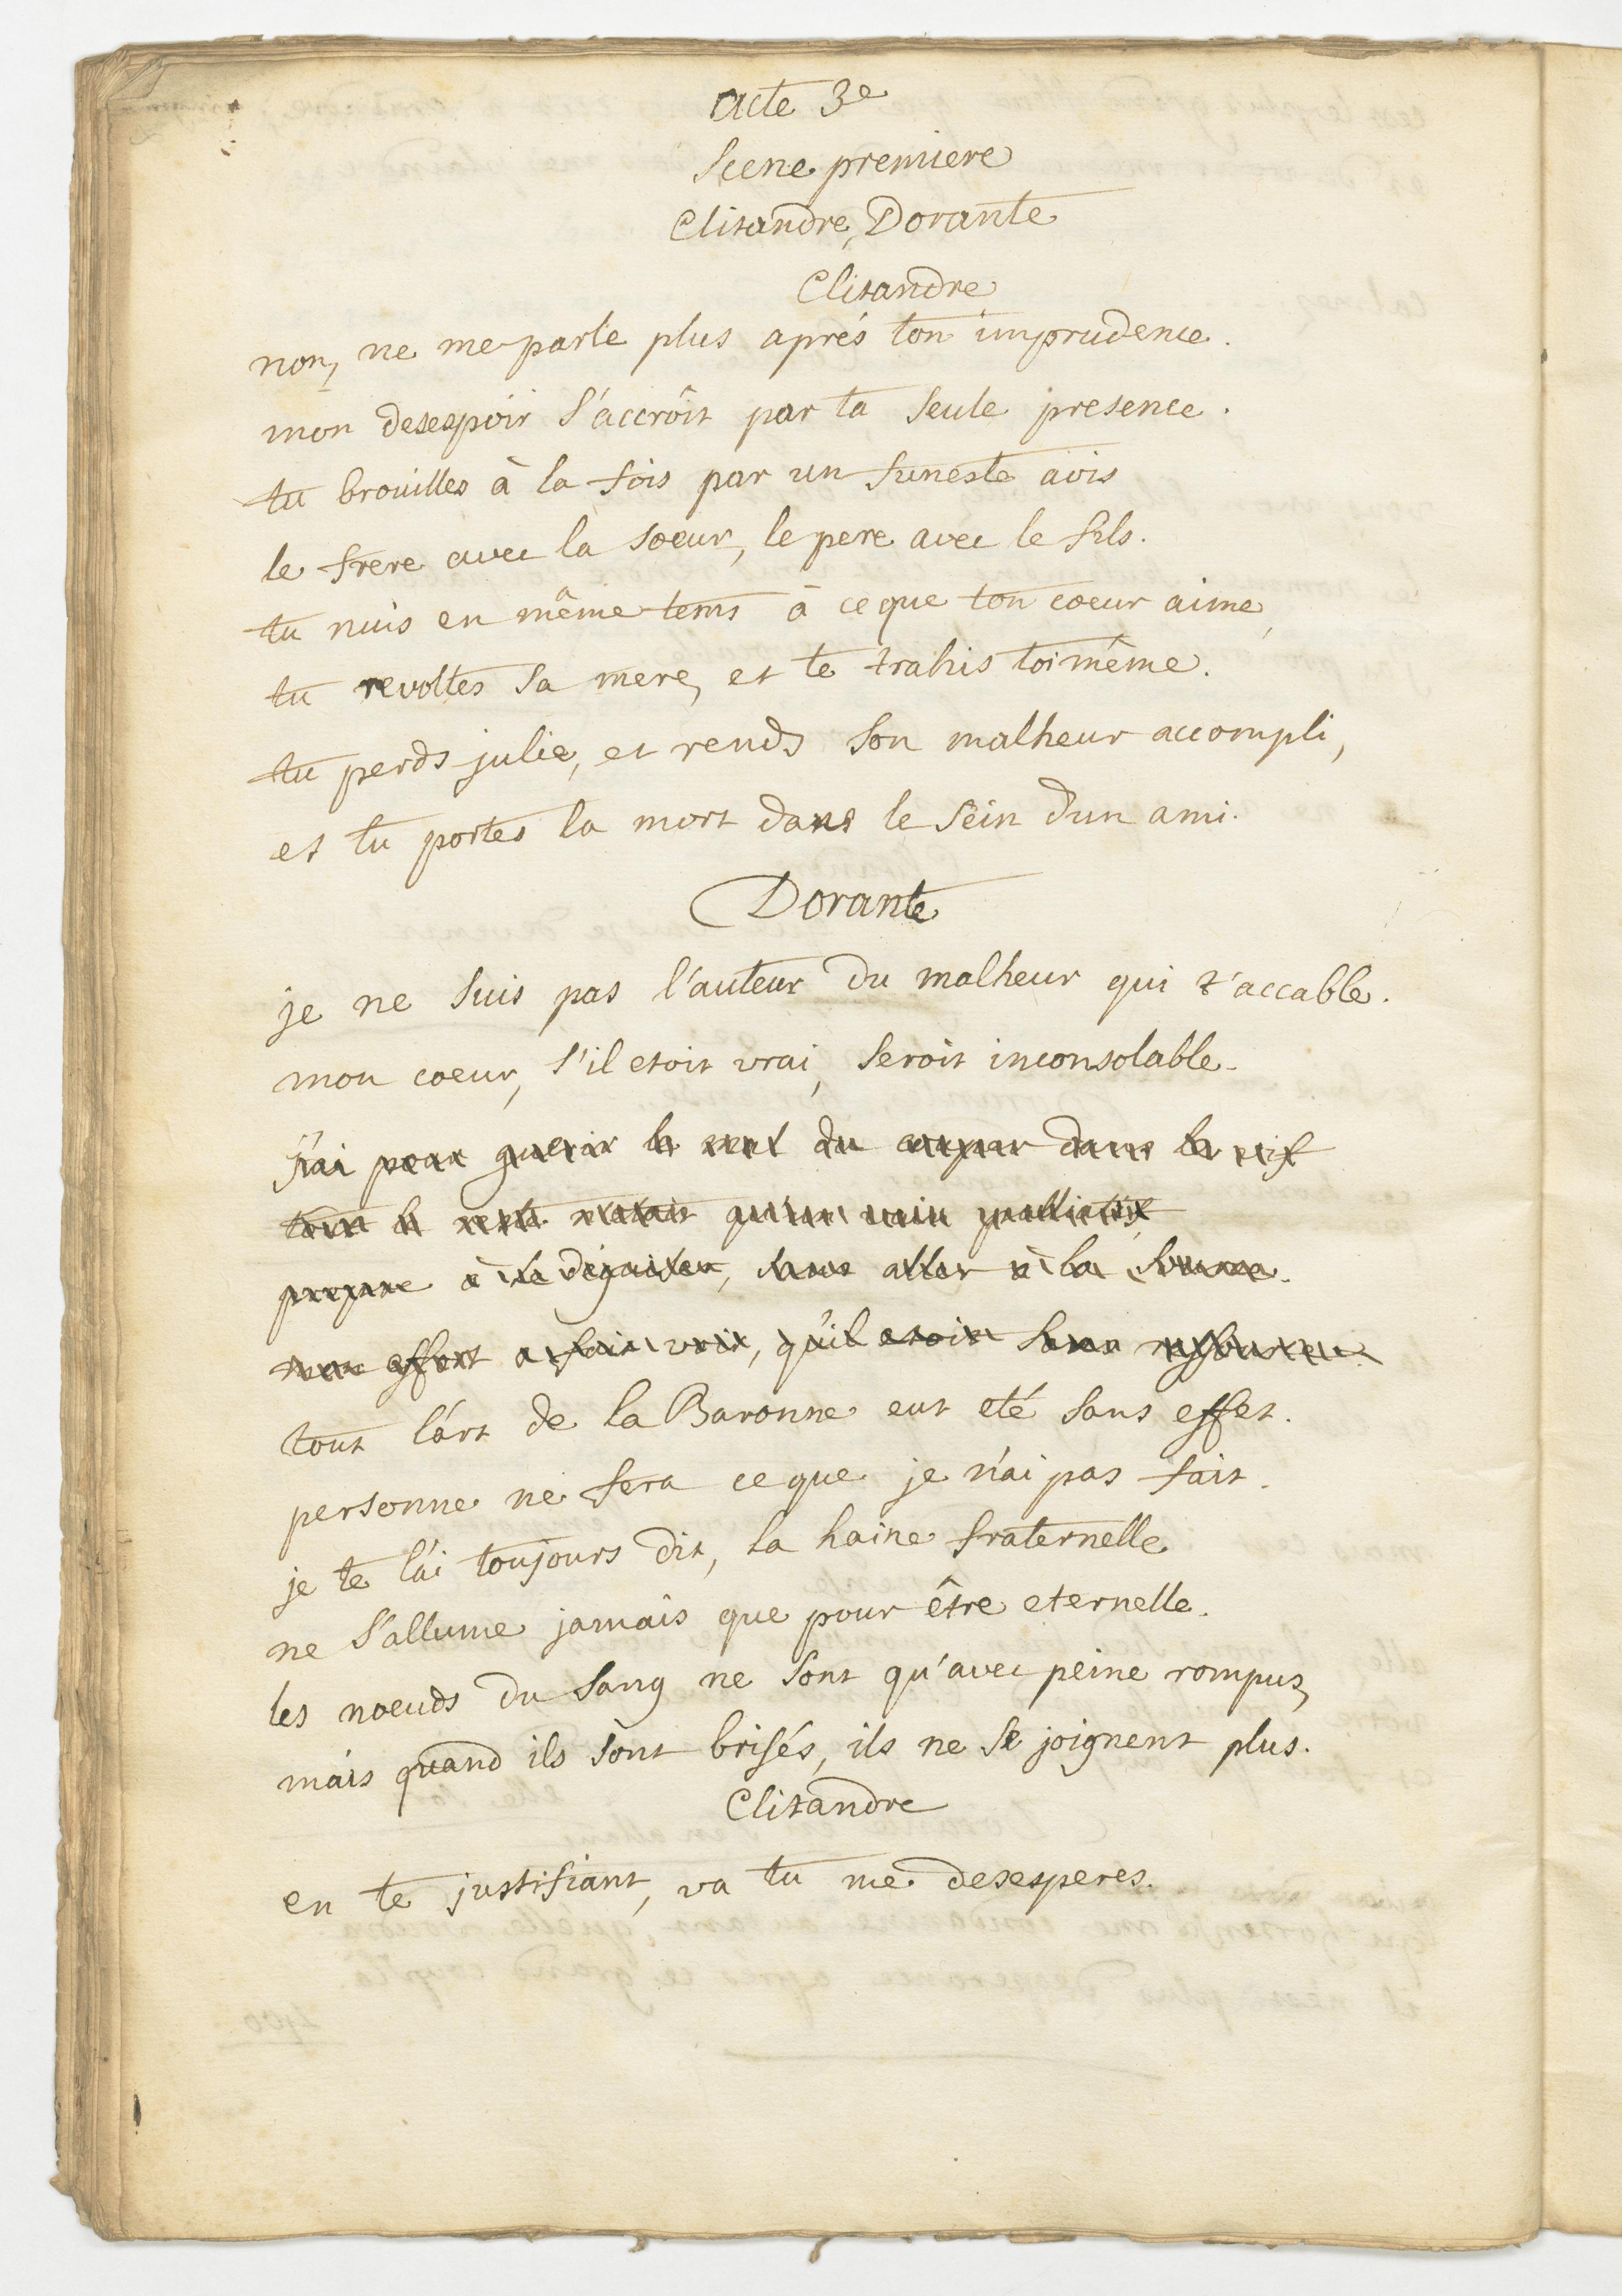 acte 3e
Scene premiere
Clitandre, Dorante
Clitandre
non, ne me parle plus aprés ton imprudence.
mon desespoir s'accroît par ta seule presence.
tu brouilles à la fois par un funeste avis
le frere avec la soeur, le pere avec le fils.
tu nuis en même tems à ce que ton coeur aime,
tu revoltes sa mere, et te trahis toi même.
tu perds julie, et rends son malheur accompli,
et tu portes la mort dans le sein d'un ami.
Dorante
je ne suis pas l'auteur du malheur qui t'accable.
mon coeur, s'il etoit vrai, seroit inconsolable.
j'ai pour guerir le mal du couper dans le vif
tout le reste n'etoit qu'un vain palliatif
propre à le déguiser, sans aller à la source.
mon effort a fait voir, qu'il etoit sans ressource.
tout l'art de la Baronne eut eté sans effet.
personne ne fera ce que je n'ai pas fait.
je te l'ai toujours dit, la haine fraternelle
ne s'allume jamais que pour être eternelle.
les noeuds du sang ne sont qu'avec peine rompus,
mais quand ils sont brisés, ils ne se joignent plus.
Clitandre
en te justifiant, va tu me desesperes.